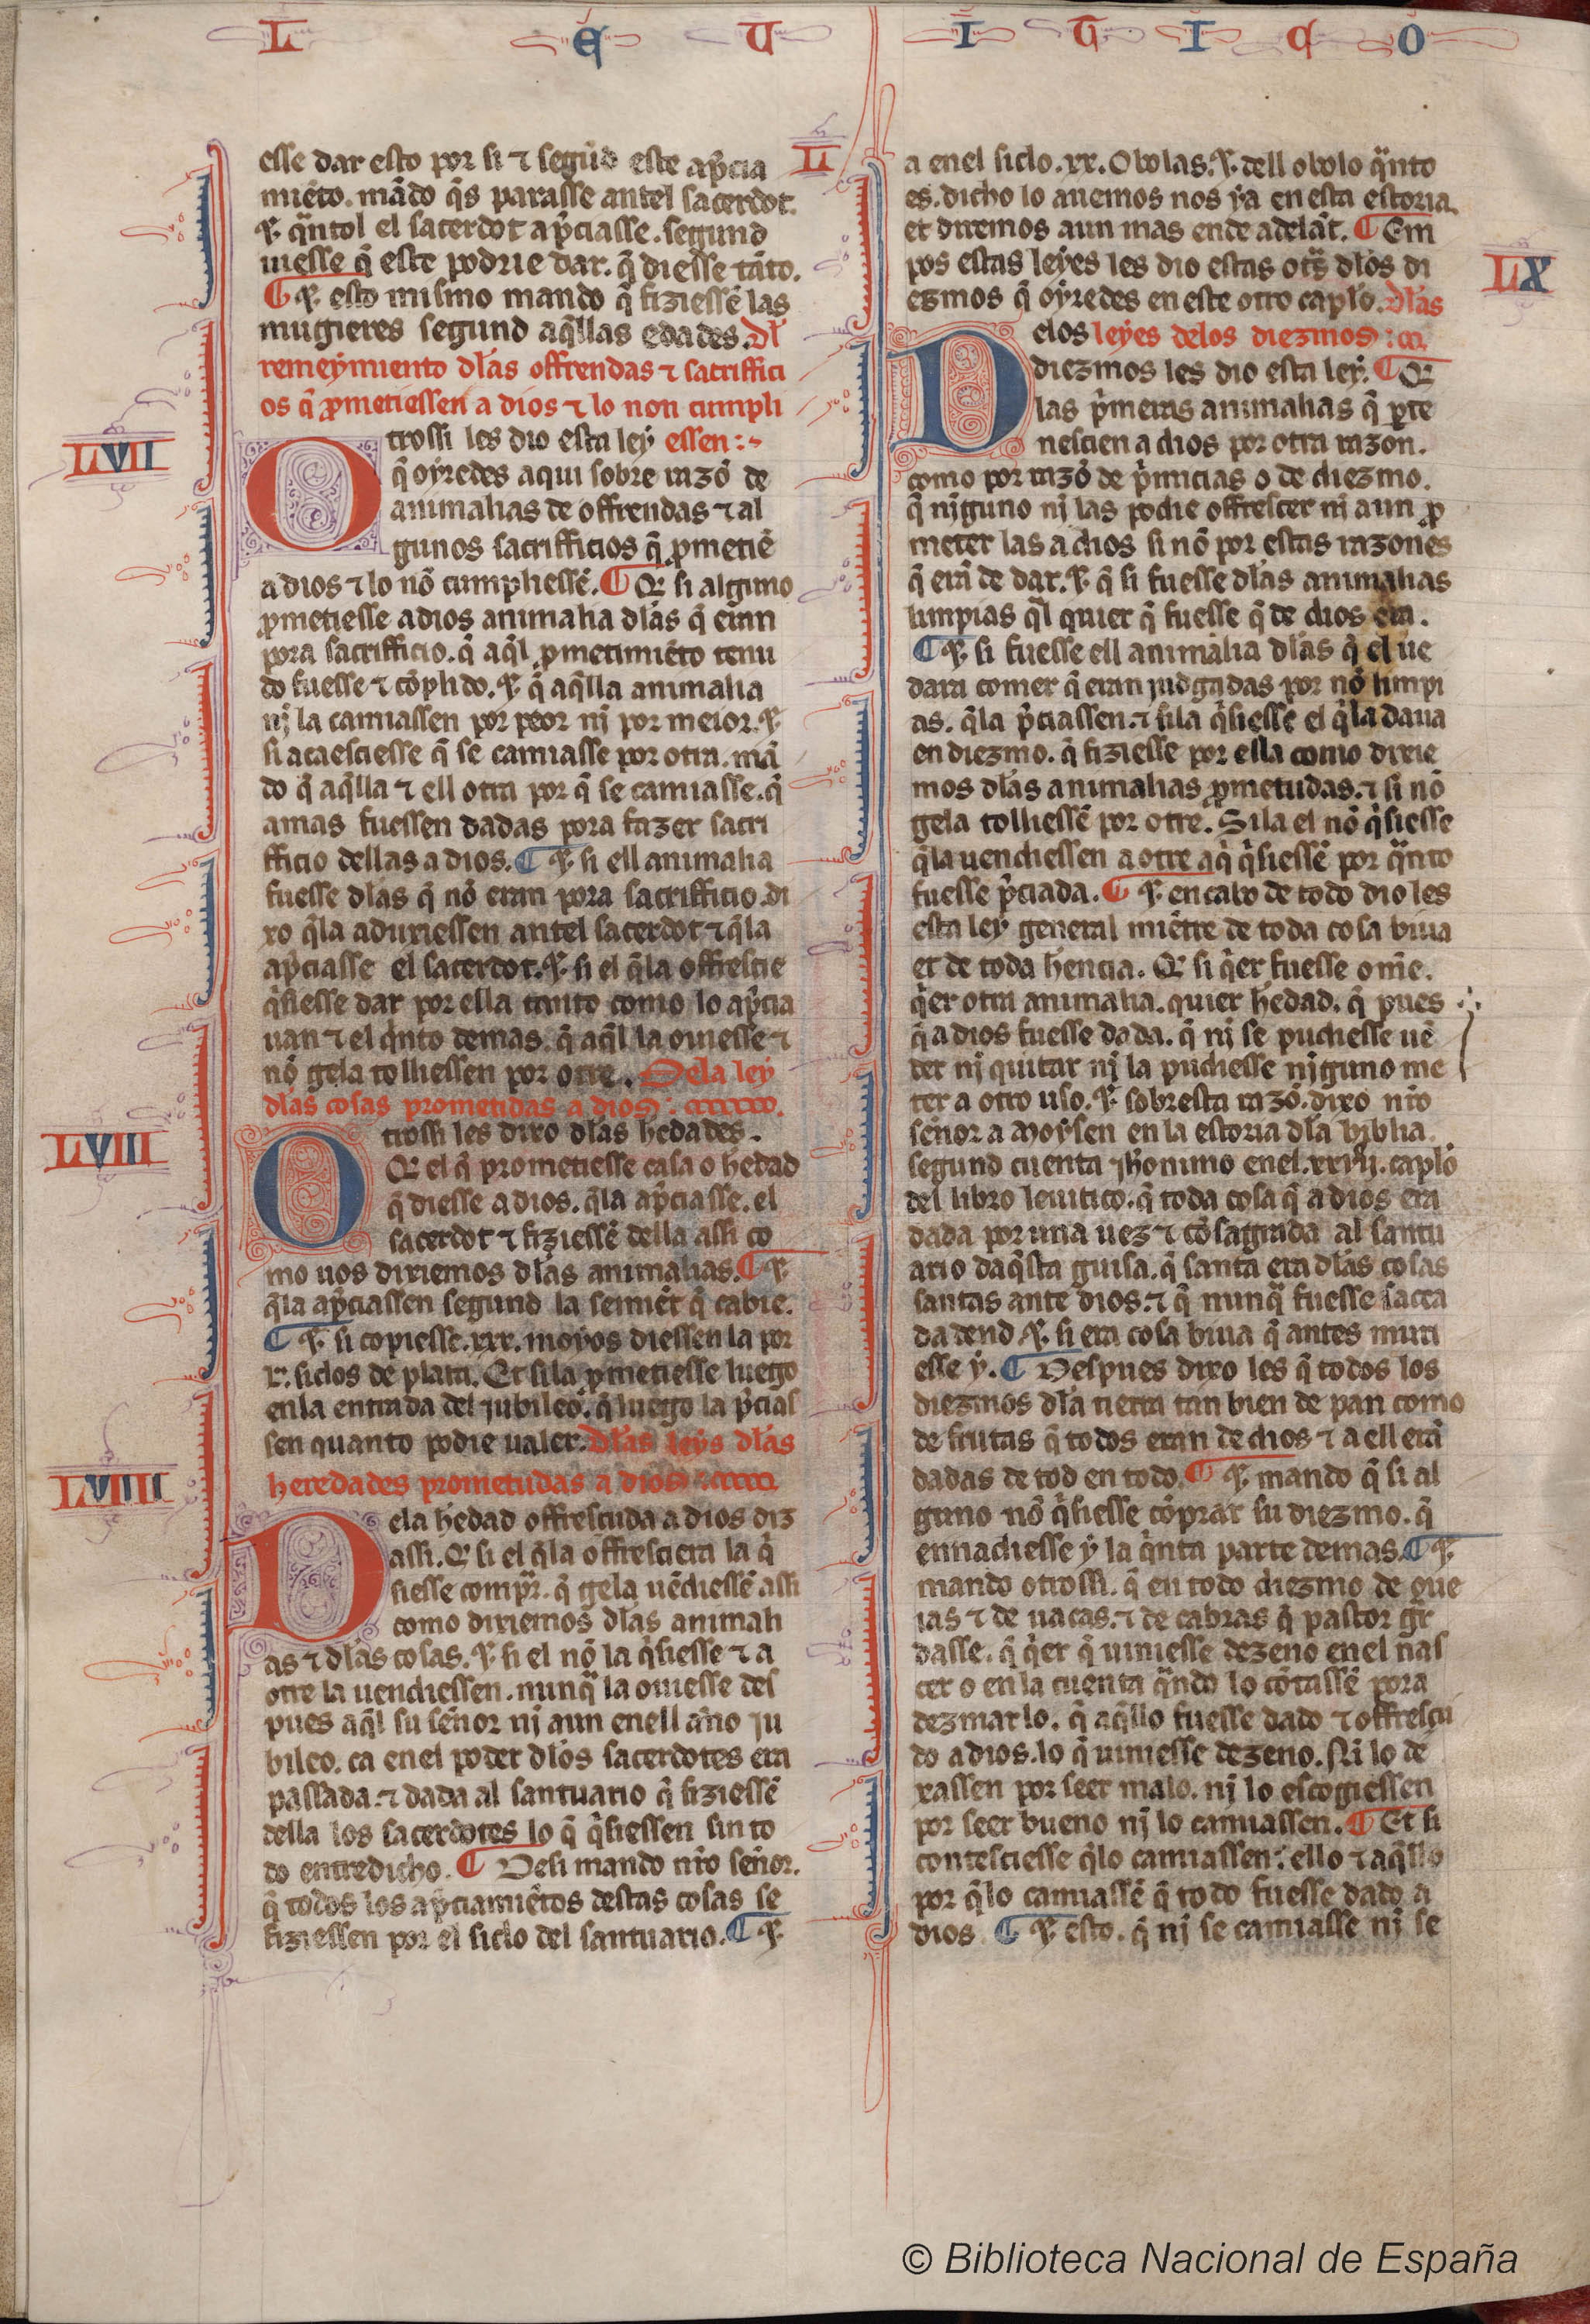 L E U I T I C O
esse dar esto por si ⁊ segũd este ap̃cia
miẽto. mãdo q̃s parasse antel sacerdot.
⁊. q̃ntol el sacerdot ap̃ciasse. segund
uiesse q̃ este podrie dar. q̃ diesse tãto.
¶ ⁊. esto mismo mando q̃ fiziessẽ las
mugieres segund aq̃llas edades. Dl̃
remeymiento dl̃as offrendas ⁊ sacriffici
os q̃ ꝓmetiessen a dios ⁊ lo non cumpli
LVII
Otrossi les dio esta ley essen :~
q̃ oyredes aqui sobre razõ de
animalias de offrendas ⁊ al
gunos sacrifficios q̃ ꝓmetiẽ
a dios ⁊ lo nõ cumpliessẽ. ¶ Q̃ si alguno
ꝓmetiesse a dios animalia dl̃as q̃ eran
pora sacrifficio. q̃ aq̃l ꝓmetimiẽto tenu
do fuesse ⁊ cõplido. ⁊. q̃ aq̃lla animalia
nj̃ la camiassen por peor nj̃ por meior. ⁊.
si acaesciesse q̃ se camiasse por otra. mã
do q̃ aq̃lla ⁊ ell otra por q̃ se camiasse. q̃
amas fuessen dadas pora fazer sacri
fficio dellas a dios. ¶ ⁊. si ell animalia
fuesse dl̃as q̃ nõ eran pora sacrifficio. di
xo q̃la aduxiessen antel sacerdot ⁊ q̃la
ap̃ciasse el sacerdot. ⁊. si el q̃la offrescie
q̃siesse dar por ella tanto como lo ap̃cia
uan ⁊ el q̃nto demas. q̃ aq̃l la ouiesse ⁊
nõ gela tolliessen por otre. Dela ley
dl̃as cosas prometidas a dios :
LVIII
Otrossi les dixo dl̃as hẽdades.
Q̃ el q̃ prometiesse casa o hẽdad
q̃ diesse a dios. q̃la ap̃ciasse. el
sacerdot ⁊ fiziessẽ della assi co
mo uos dixiemos dl̃as animalias. ¶ ⁊.
q̃la ap̃ciassen segund la semiẽt q̃ cabie.
¶ ⁊. si copiesse. xxx. moyos diessen la por
L. siclos de plata. Et sila ꝓmetiesse luego
enla entrada del jubileo. q̃ luego la p̃cias
sen quanto podie ualer. Dl̃as leys dl̃as
heredades prometudas a dios :
LVIIII
Dela hẽdad offrescuda a dios diz
assi. Q̃ si el q̃la offresciera la q̃
siesse compr̃. q̃ gela uẽdiessẽ assi
como dixiemos dl̃as animali
as ⁊ dl̃as cosas. ⁊. si el nõ la q̃siesse ⁊ a
otre la uendiessen. nunq̃ la ouiesse des
pues aq̃l su señor nj̃ aun enell año ju
bileo. ca en el poder dl̃os sacerdotes era
passada. ⁊ dada al santuario q̃ fiziessẽ
della los sacerdotes lo q̃ q̃siessen sin to
do entredicho. ¶ Desi mando nr̃o señor.
q̃ todos los ap̃ciamiẽtos destas cosas se
fiziessen por el siclo del santuario. ¶ ⁊.
a enel siclo. xx. Obolas. ⁊. dell obolo q̃nto
es. dicho lo auemos nos ya en esta estoria.
et diremos aun mas ende adelãt. ¶ Em
pos estas leyes les dio estas otr̃s dl̃os di
LX
ezmos q̃ oyredes en este otro capl̃o. Dl̃as
Delos leyes delos diezmos :
diezmos les dio esta ley. ¶ Q̃
las p̃meras animalias q̃ ꝑte
nescien a dios por otra razon.
como por razõ de p̃micias o de diezmo.
q̃ nj̃guno nj̃ las podie offrescer nj̃ aun ꝓ
meter las a dios si nõ por estas razones
q̃ erã de dar. ⁊. q̃ si fuesse dl̃as animalias
limpias q̃l quier q̃ fuesse q̃ de dios era.
¶ ⁊. si fuesse ell animalia dl̃as q̃ el ue
dara comer q̃ eran judgadas por nõ limpi
as. q̃la p̃ciassen. ⁊ sila q̃siesse el q̃la daua
en diezmo. q̃ fiziesse por ella como dixie
mos dl̃as animalias ꝓmetudas. ⁊ si nõ
gela tolliessẽ por otre. Si la el nõ q̃siesse
q̃la uendiessen a otre aq̃ q̃siessẽ por q̃nto
fuesse p̃ciada. ¶ ⁊. en cabo de todo dio les
esta ley general miẽtre de toda cosa biua
et de toda hẽncia. Q̃ si q̃er fuesse om̃e.
q̃er otra animalia. quier hẽdad. q̃ pues
q̃ a dios fuesse dada. q̃ nj̃ se pudiesse uẽ
der nj̃ quitar nj̃ la pudiesse nj̃guno me
ter a otro uso. ⁊. sobresta razõ. dixo nr̃o
señor a Moysen en la estoria dl̃a biblia.
segund cuenta jh̃onimo enel. xxvij. capl̃o
del libro leuitico. q̃ toda cosa q̃ a dios era
dada por una uez ⁊ cõsagrada al santu
ario daq̃sta guisa. q̃ santa era dl̃as cosas
santas ante dios. ⁊ q̃ nunq̃ fuesse sacca
da dend ⁊. si era cosa biua q̃ antes muri
esse y. ¶ Despues dixo les q̃ todos los
diezmos dl̃a tierra tan bien de pan como
de frutas q̃ todos eran de dios ⁊ a ell erã
dadas de tod en todo. ¶ ⁊. mando q̃ si al
guno nõ q̃siesse cõprar su diezmo. q̃
ennadiesse y la q̃nta parte demas. ¶ ⁊.
mando otrossi. q̃ en todo diezmo de oue
ias ⁊ de uacas. ⁊ de cabras q̃ pastor gr̃
dasse. q̃ q̃er q̃ uiniesse dezeno en el nas
cer o en la cuenta q̃ndo lo cõtassẽ pora
dezmarlo. q̃ aq̃llo fuesse dado ⁊ offrescu
do a dios. lo q̃ uiniesse dezeno. Ni lo de
xassen por seer malo. nj̃ lo escogiessen
por seer bueno nj̃ lo camiassen. ¶ Et si
contesciesse q̃lo camiassen: ello ⁊ aq̃llo
por q̃lo camiassẽ q̃ todo fuesse dado a
dios. ¶ ⁊. esto. q̃ nj̃ se camiasse nj̃ se
© Biblioteca Nacional de España